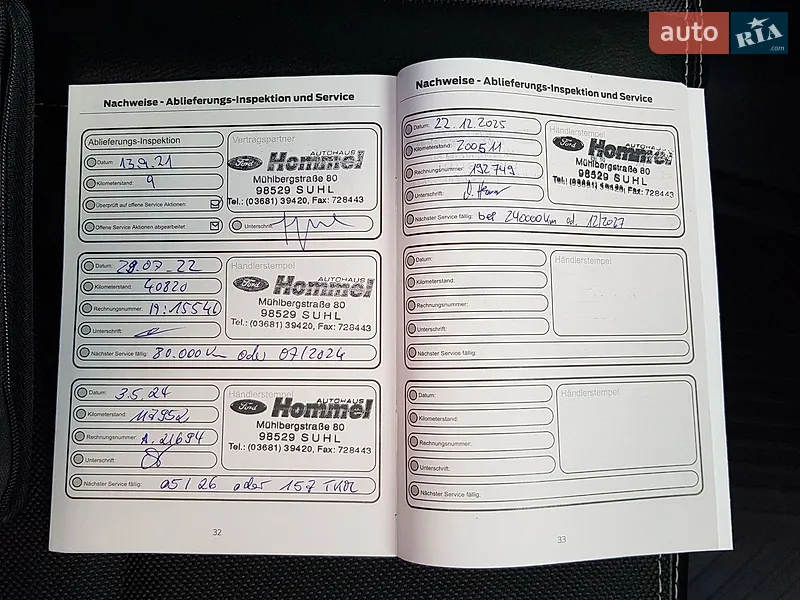 auto RIA .com
Nachweise - Ablieferungs-Inspektion und Service
Ablieferungs-Inspektion
Datum: 13.9.21
Kilometerstand: 9
Überprüft auf offene Service Aktionen:
Offene Service Aktionen abgearbeitet:
Vertragspartner
Ford AUTOHAUS
Hommel
Mühlbergstraße 80
98529 SUHL
Tel.: (03681) 39420, Fax: 728443
Unterschrift:
Datum: 29.07.22
Kilometerstand: 40820
Rechnungsnummer: 19:15546
Unterschrift:
Händlerstempel
Ford AUTOHAUS
Hommel
Mühlbergstraße 80
98529 SUHL
Tel.: (03681) 39420, Fax: 728443
Nächster Service fällig: 80.000 km oder 07/2024
Datum: 3.5.24
Kilometerstand: 117952
Rechnungsnummer: A. 21694
Unterschrift:
Händlerstempel
Ford AUTOHAUS
Hommel
Mühlbergstraße 80
98529 SUHL
Tel.: (03681) 39420, Fax: 728443
Nächster Service fällig: 05/26 oder 157 TKM
32
Nachweise - Ablieferungs-Inspektion und Service
Datum: 22.12.2025
Kilometerstand: 200511
Rechnungsnummer: 192749
Unterschrift:
Händlerstempel
Ford AUTOHAUS
Hommel
Mühlbergstraße 80
98529 SUHL
Tel.: (03681) 39420, Fax: 728443
Nächster Service fällig: bei 240000 km od. 12/2027
Datum:
Kilometerstand:
Rechnungsnummer:
Unterschrift:
Händlerstempel
Nächster Service fällig:
Datum:
Kilometerstand:
Rechnungsnummer:
Unterschrift:
Händlerstempel
Nächster Service fällig:
33